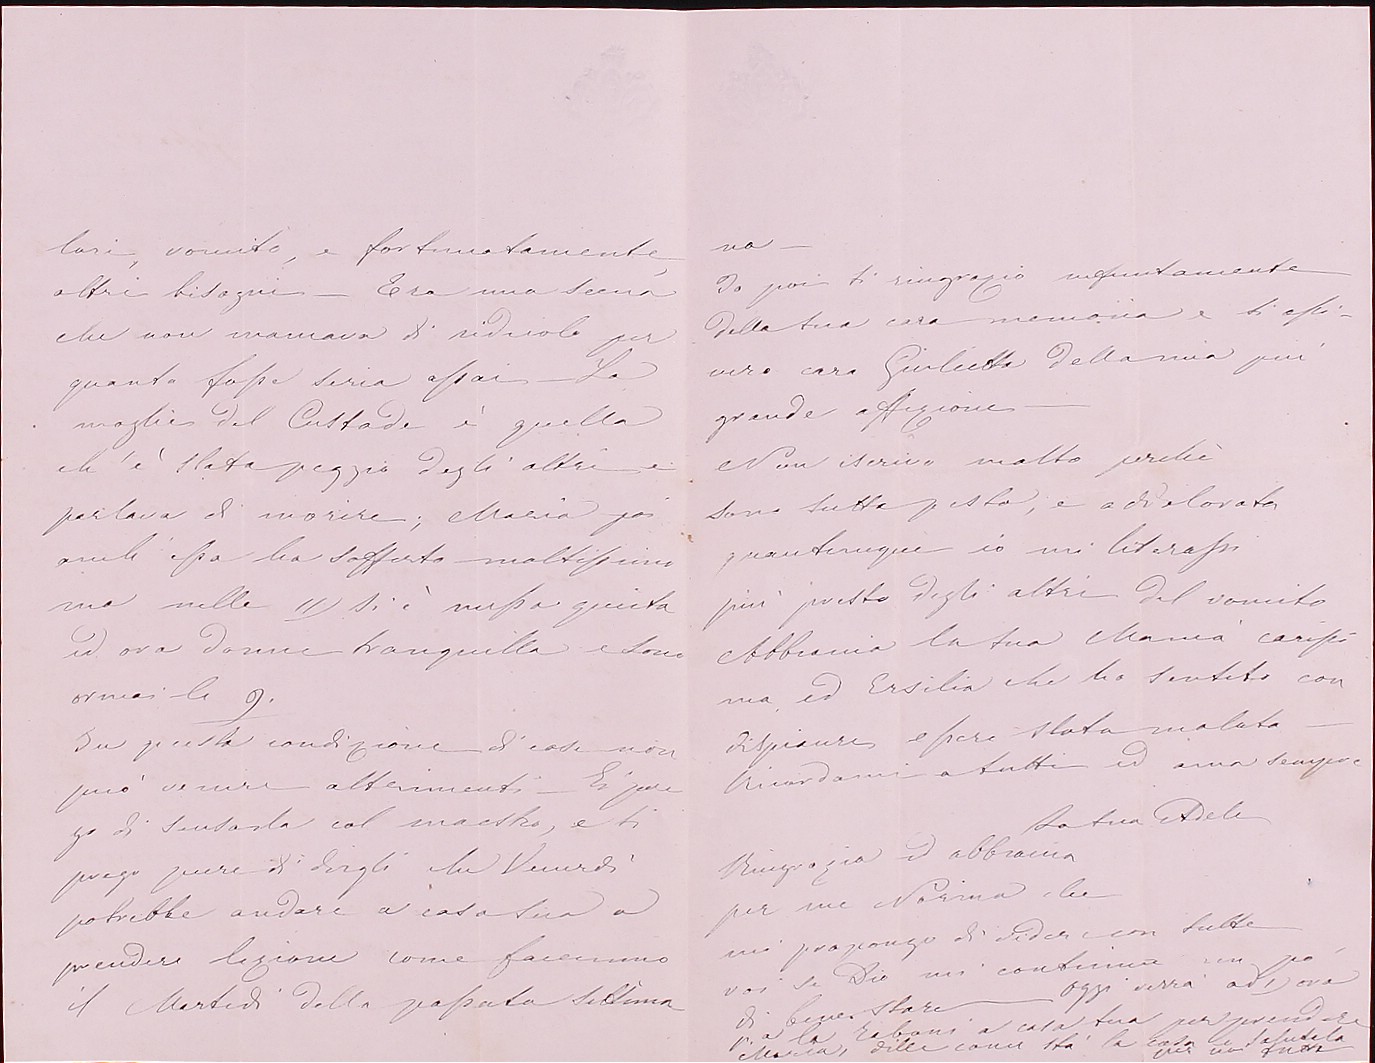 lori, vomito, e fortunatamente,
altri bisogni — Era una scena
che non mancava di ridicolo per
quanto fosse seria assai — La
moglie del Custode è quella
ch'è stata peggio degli altri e
parlava di morire; Maria poi
anch'essa ha sofferto moltissimo
ma nelle 11 si è messa quieta
ed ora dorme tranquilla e sono
ormai le 9.
In questa condizione di cose non
può venire altrimenti — Ti pre
go di scusarla col maestro, e ti
prego pure di dirgli che Venerdì
potrebbe andare a casa sua a
prendere lezione come facemmo
il Martedì della passata settima
na —
Io poi ti ringrazio
della tua cara memoria e ti assi-
curo cara Giulietta della mia più
grande affezione —
Non iscrivo molto perchè
sono tutta pesta, e addolorata
quantunque io mi liberassi
più presto degli altri del vomito
Abbraccia la tua Mamà carissi
ma, ed Ersilia che ho sentito con
dispiacere essere stata malata —
Ricordami a tutti ed ama sempre
la tua Adele
Ringrazia ed abbraccia
per me Norina che
mi propongo di vedere con tutte
voi se Dio mi continua un po'
di benestare — Oggi verrà ad ora
la a casa tua per prendere
Maria, dille come stà la e salutala
per noi tutti